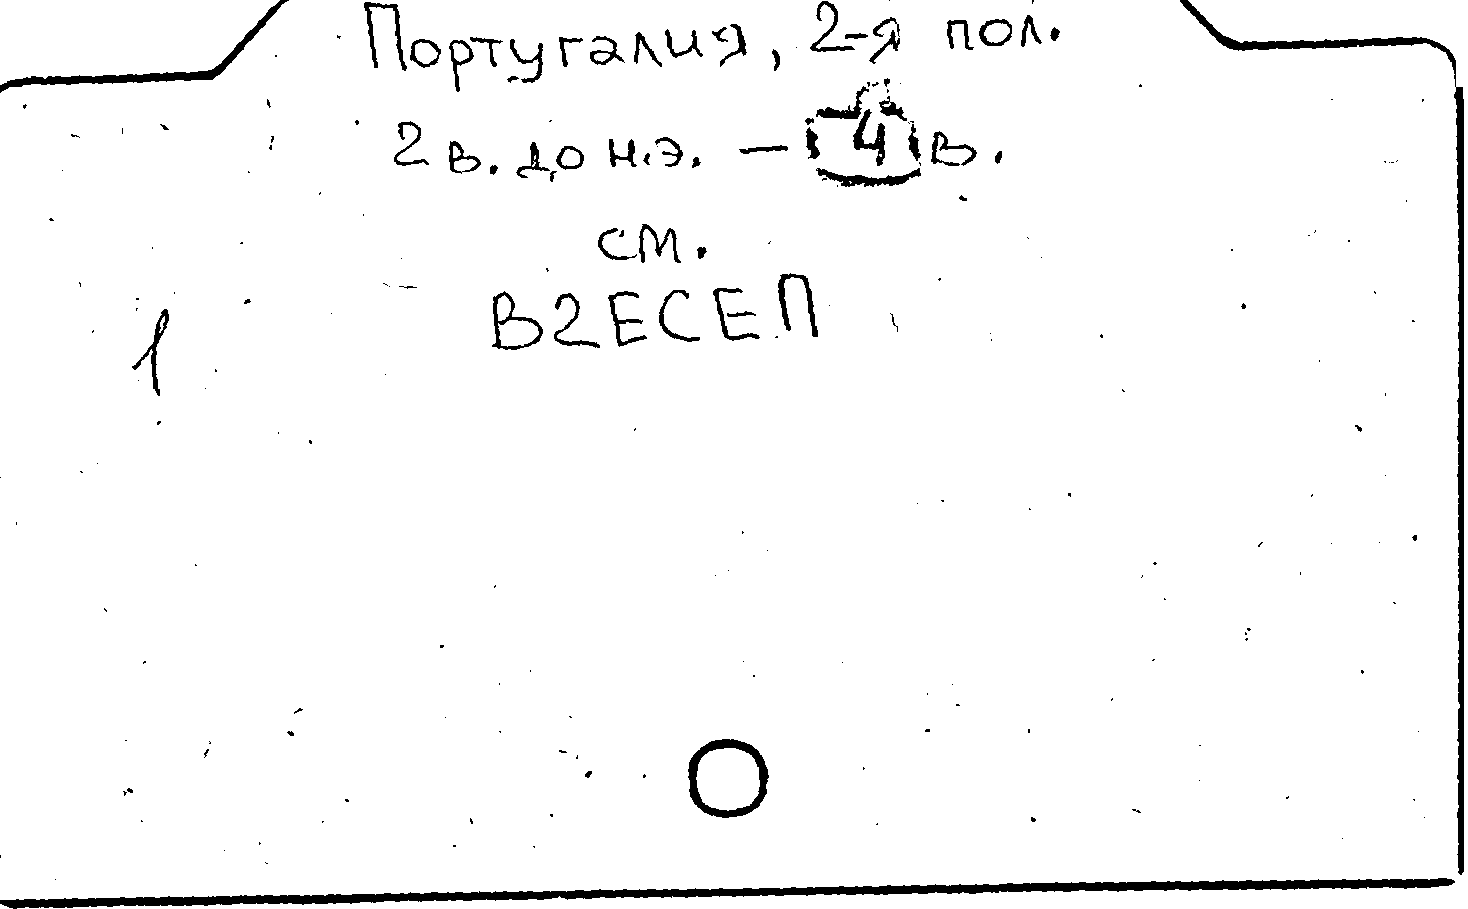 Португалия, 2-я пол.
2 в. до н.э. — 4 в.
см.
В2ЕСЕП
1